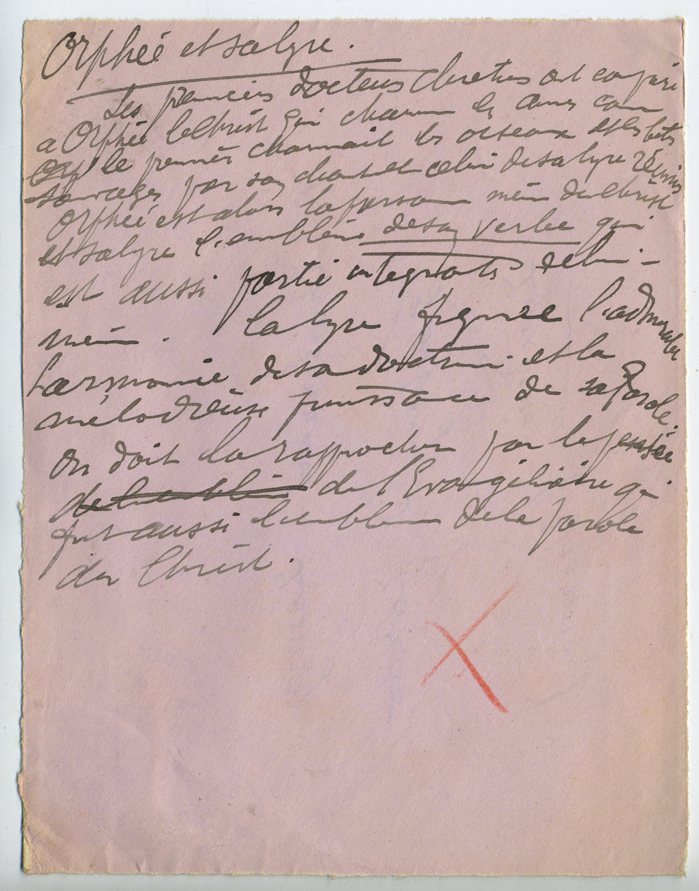 Orphée et sa lyre.
Les premiers docteurs chrétiens ont comparé
a Orphée le Christ qui charme les âmes comme
le premier charmait les oiseaux et les bêtes
sauvages par son chant et celui de sa lyre réunis
Orphée est alors la personne même du Christ
et sa lyre l'emblème de son verbe qui
est aussi partie intégrante de lui-
même. La lyre figure l'admirable
harmonie de sa doctrine et la
mélodieuse puissance de sa Parole.
On doit la rapprocher par la pensée
de l'Evangéliaire qui
fut aussi l'emblème de la parole
du Christ.